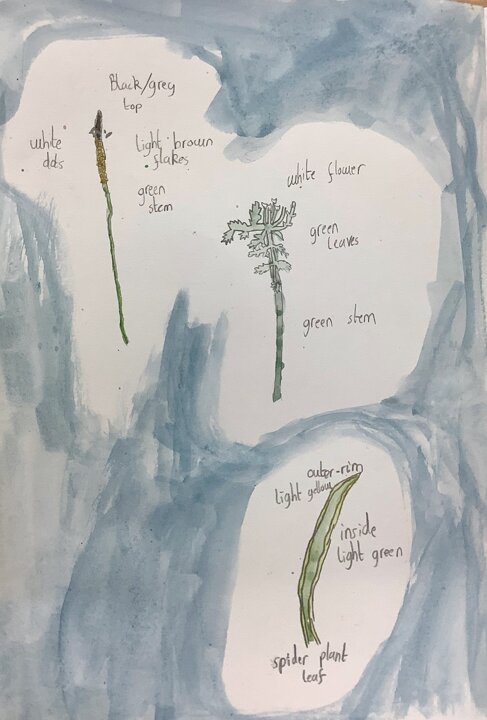 Black/grey
top
white
dots
light brown
flakes
green
stem
white flower
green
leaves
green stem
outer-rim
light yellow
inside
light green
spider plant
leaf